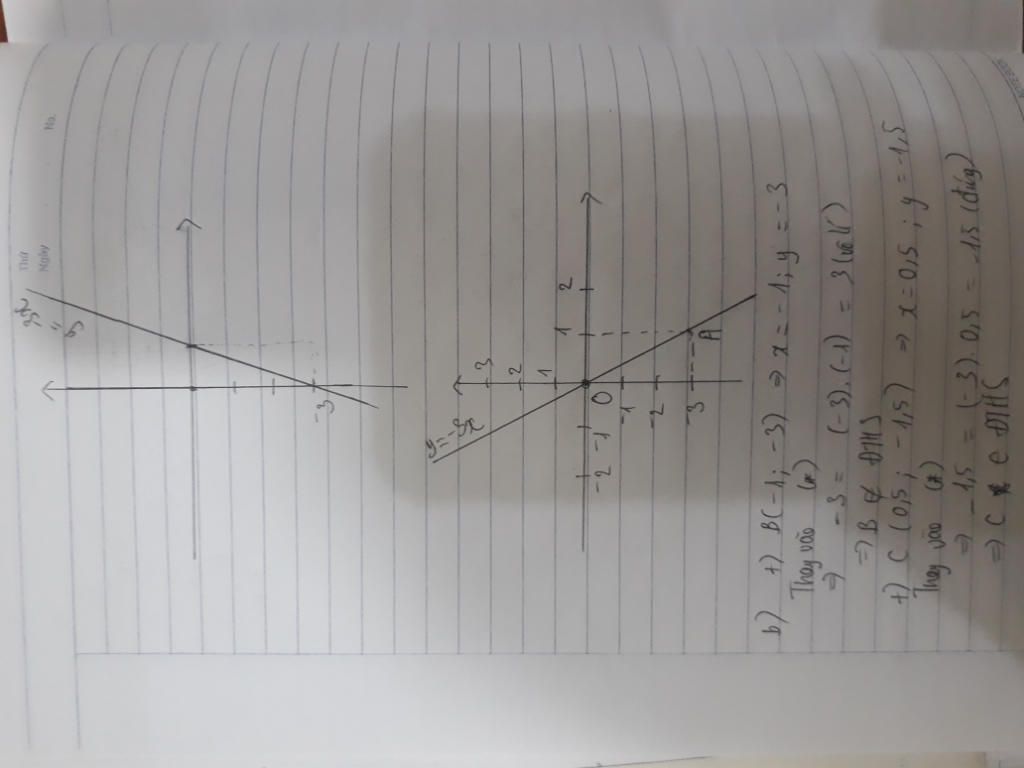 Thứ
Ngày
No.
-3
y=-3x
3
2
1
-2 -1 O 1 2
-1
-2
-3
A
b) +) B(-1; -3) ⇒ x = -1; y = -3
Thay vào (*)
⇒ -3 = (-3).(-1) = 3 (vô lí)
⇒ B ∉ ĐTHS
+) C (0,5; -1,5) ⇒ x = 0,5; y = -1,5
Thay vào (*)
⇒ -1,5 = (-3).0,5 = -1,5 (đúng)
⇒ C ∈ ĐTHS